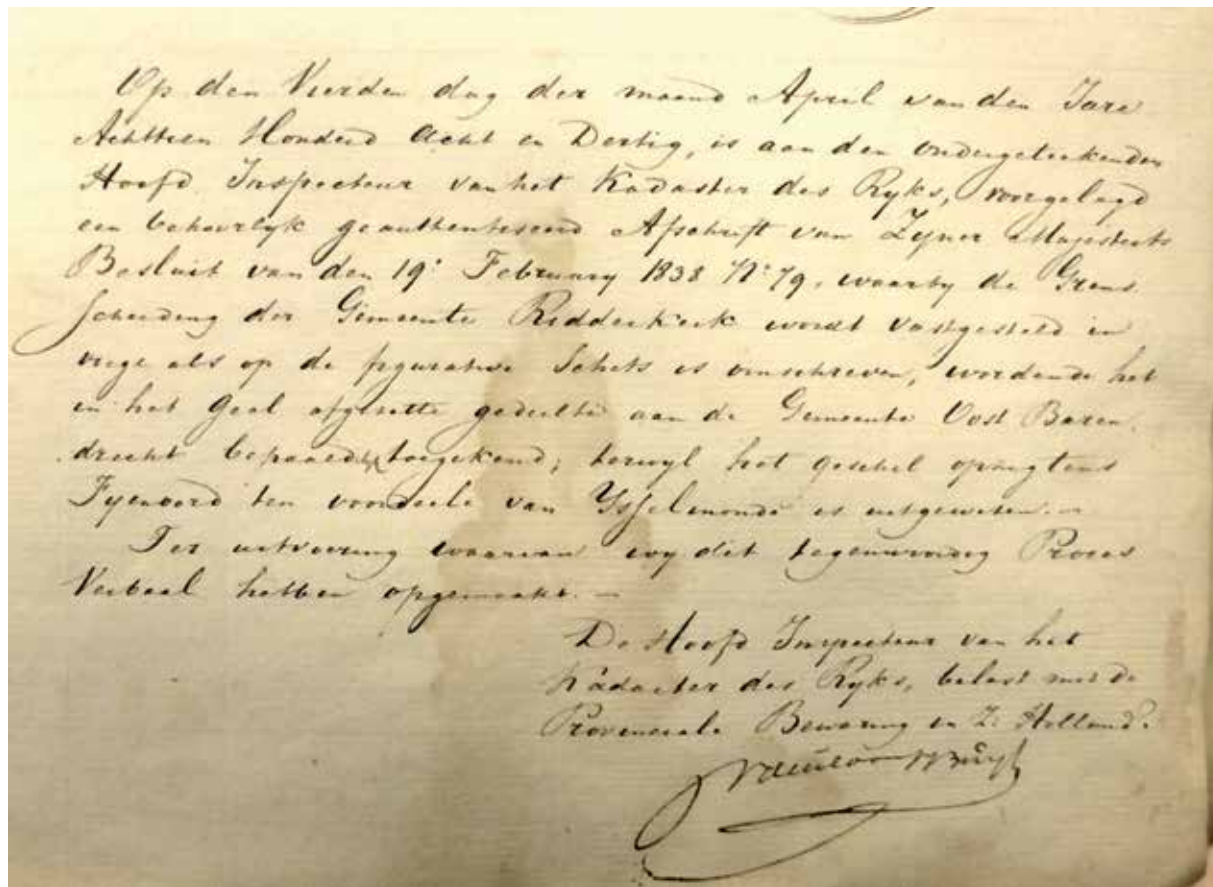 Op den Vierden dag der maand April van den Jare
Achttien Honderd Acht en Dertig, is aan den ondergeteekenden
Hoofd Inspecteur van het Kadaster des Ryks, voorgelegd
een behoorlyk geauthentiseerd Afschrift van Zyner Majesteits
Besluit van den 19e February 1838 No 79, waarby de Grens
scheiding der Gemeente Ridderkerk wordt vastgesteld in
voege als op de figurative Schets is omschreven, wordende het
in het Geel afgezette gedeelte aan de Gemeente Oost Baren.
drecht bepaaldt toegekend; terwyl het geschil opzigtens
Fyenoord ten voordeele van Ysselmonde is uitgewezen.—
Ter uitvoering waarvan wy dit tegenwoordig Proces
Verbaal hebben opgemaakt.—
De Hoofd Inspecteur van het
Kadaster des Ryks, belast met de
Provinciale Bewaring in Z. Holland.